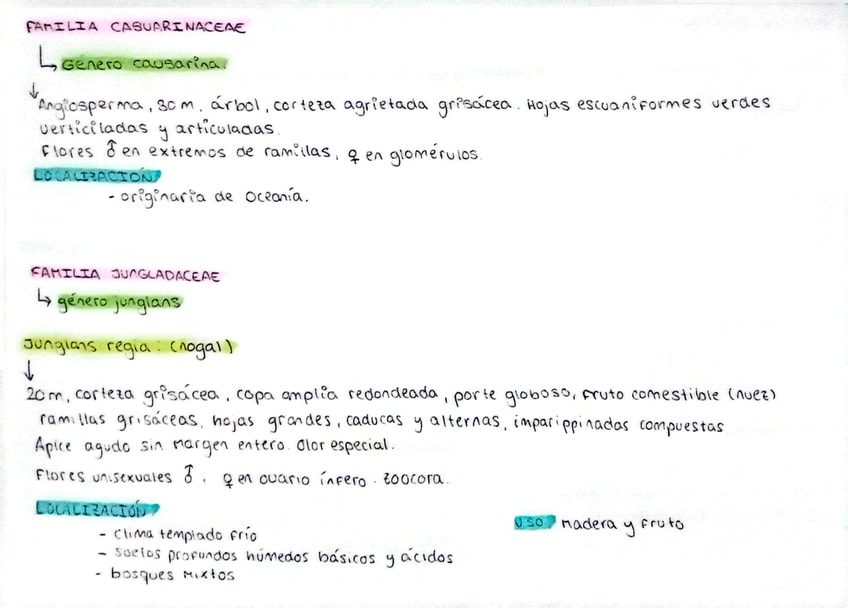 FAMILIA CASUARINACEAE
Género causarina.
Angiosperma, 30 m. árbol, corteza agrietada grisácea. Hojas escuaniformes verdes
verticiladas y artículadas.
Flores ♂ en extremos de ramillas, ♀ en glomérulos.
LOCALIZACIÓN
- originaria de Oceanía.
FAMILIA JUNGLADACEAE
género junglans
Junglans regia: (nogal)
20 m, corteza grisácea, copa amplia redondeada, porte globoso, fruto comestible (nuez)
ramillas grisáceas, hojas grandes, caducas y alternas, imparippinadas compuestas
Ápice agudo sin margen entero. Olor especial.
Flores unisexuales ♂, ♀ en ovario ínfero. zoocora.
LOCALIZACIÓN
USO madera y fruto
- Clima templado frío
- Suelos profundos húmedos básicos y ácidos
- bosques mixtos